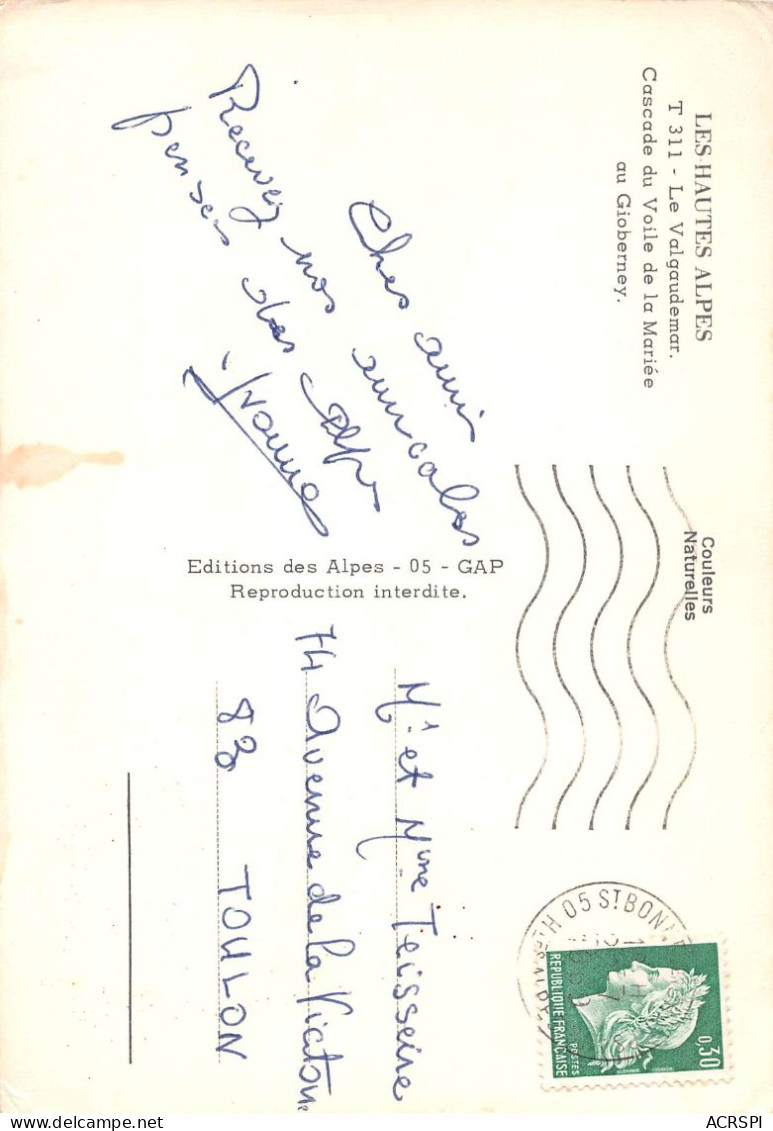 LES HAUTES ALPES
T 311 - Le Valgaudemar.
Cascade du Voile de la Mariée
au Gioberney.
Couleurs
Naturelles
Chers amis
Recevez nos amicales
pensées des Alpes
Yvonne
Editions des Alpes - 05 - GAP
Reproduction interdite.
Mr et Mme Teisseire
74 Avenue de la Victoire
83 TOULON
05 ST BONN
REPUBLIQUE FRANÇAISE
POSTES
0,30
ACRSPI